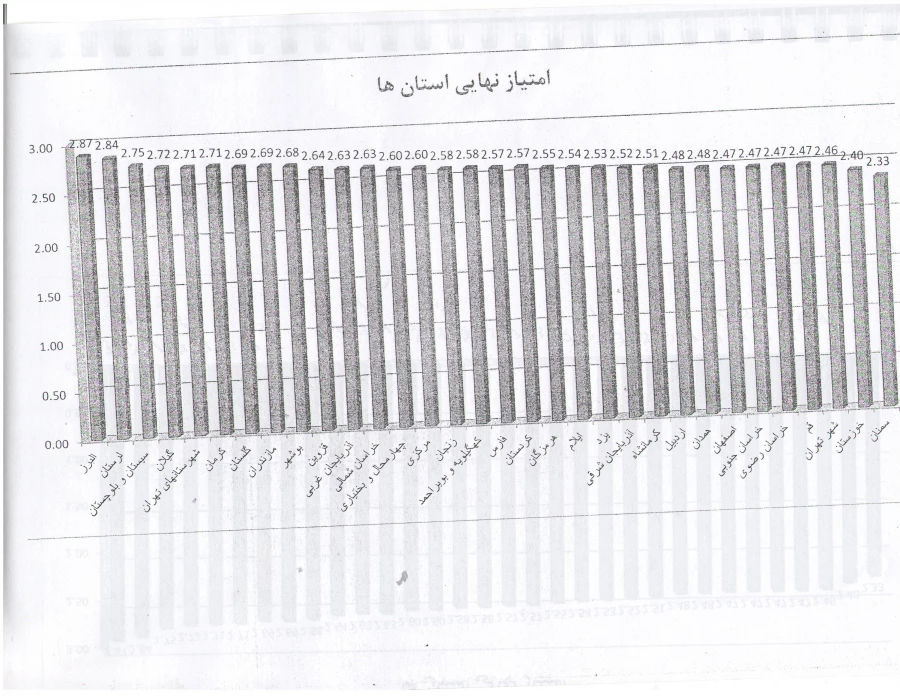 امتیاز نهایی استان ها
3.00
2.50
2.00
1.50
1.00
0.50
0.00
2.87 2.84 2.75 2.72 2.71 2.71 2.69 2.69 2.68 2.64 2.63 2.63 2.60 2.60 2.58 2.58 2.57 2.57 2.55 2.54 2.53 2.52 2.51 2.48 2.48 2.47 2.47 2.47 2.47 2.46 2.40 2.33
البرز
لرستان
سیستان و بلوچستان
گیلان
شهرستانهای تهران
کرمان
گلستان
مازندران
بوشهر
قزوین
آذربایجان غربی
خراسان شمالی
چهارمحال و بختیاری
مرکزی
زنجان
کهگیلویه و بویراحمد
فارس
کردستان
هرمزگان
ایلام
یزد
آذربایجان شرقی
کرمانشاه
اردبیل
همدان
اصفهان
خراسان جنوبی
خراسان رضوی
قم
شهر تهران
خوزستان
سمنان